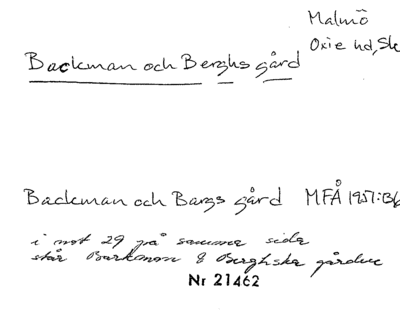 Malmö
Oxie hd, Sk
Backman och Berghs gård
Backman och Bargs gård MFÅ 1951:
i not 29 på samma sida
står Barkman & Berghska gården
Nr 21462